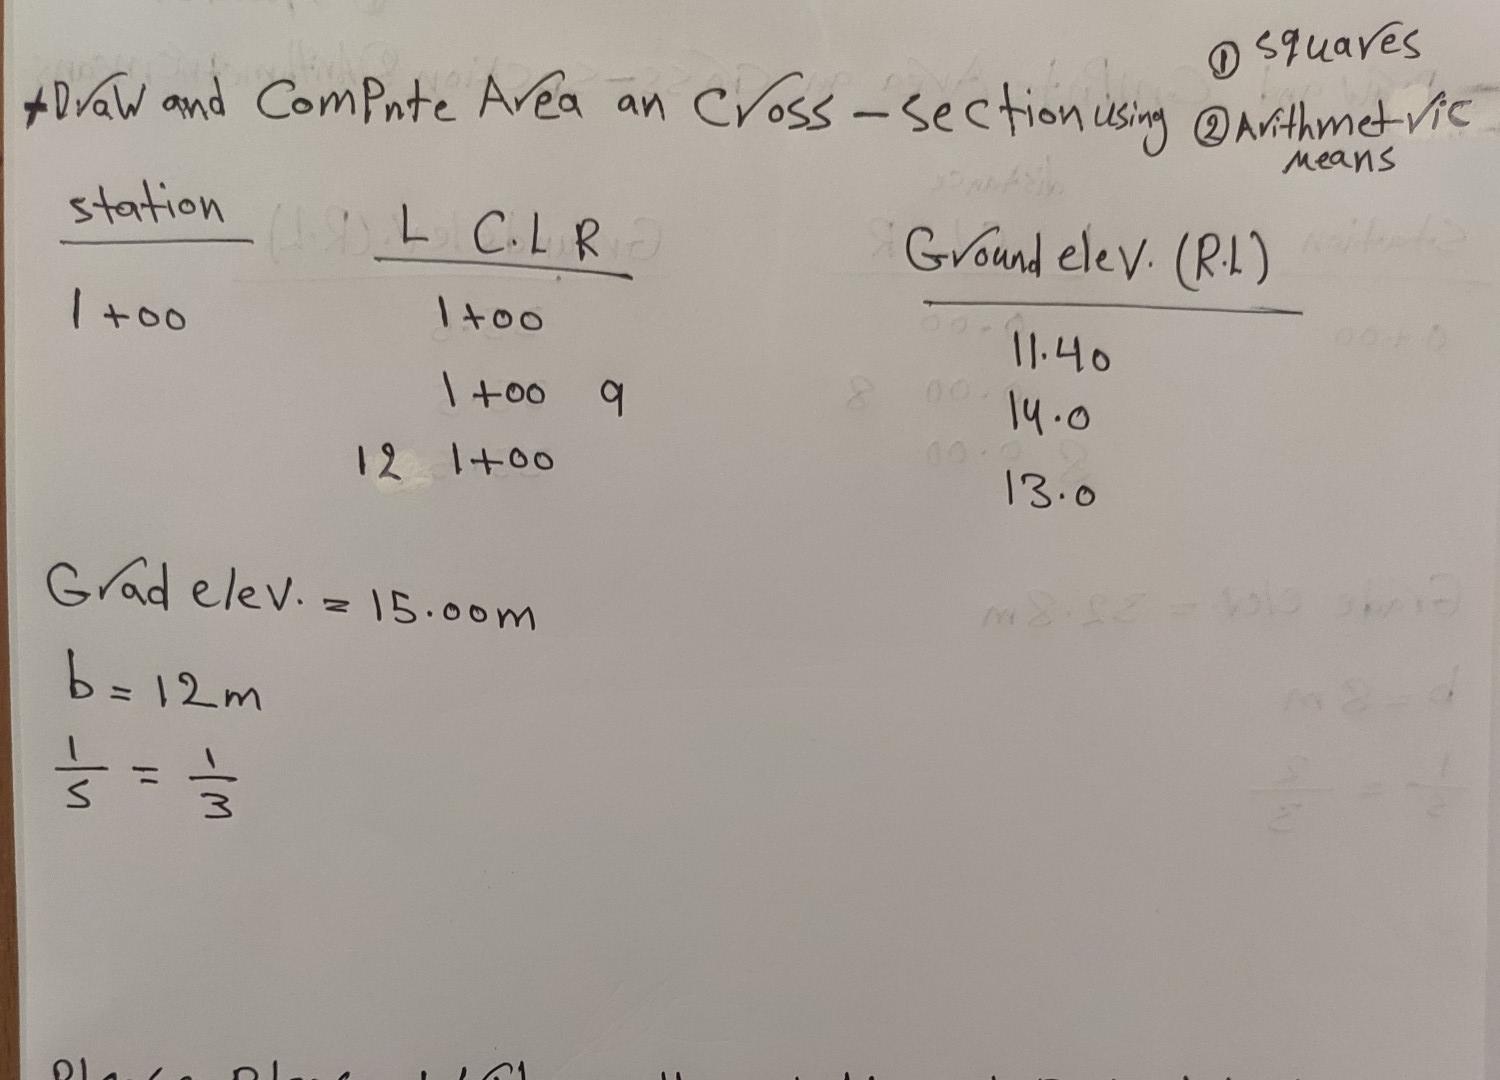 ① squares
+Draw and Compute Area an Cross-section using ② Arithmetric
Means
station L C.L R Ground elev. (R.L)
1+00 1+00 11.40
1+00 9 14.0
12 1+00 13.0
Grad elev. = 15.00m
b = 12m
1/S = 1/3